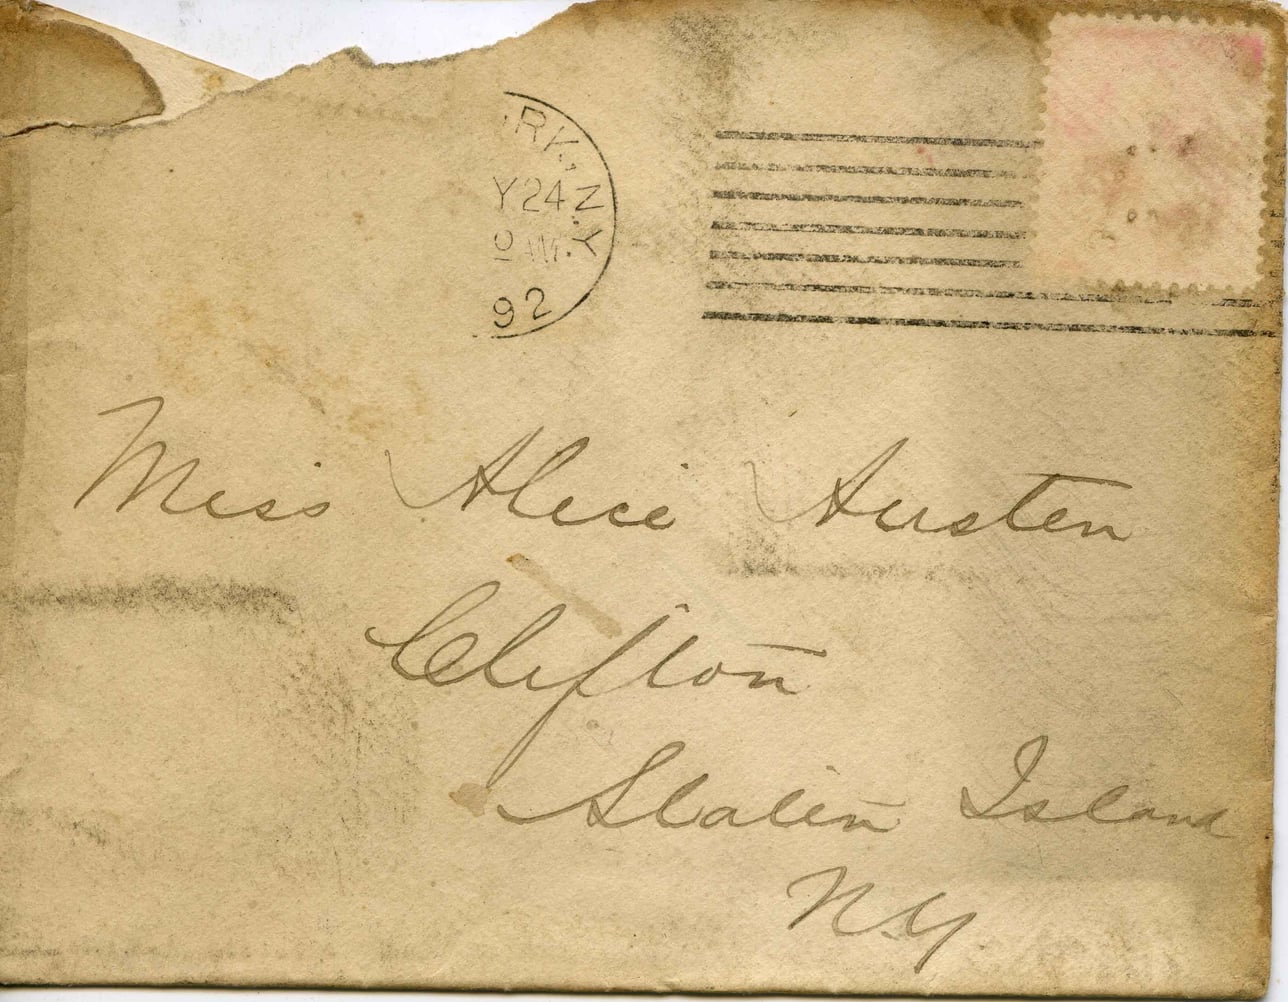 RY, N.Y.
Y 24
92
Miss Alice Austen
Clifton
Staten Island
N.Y.